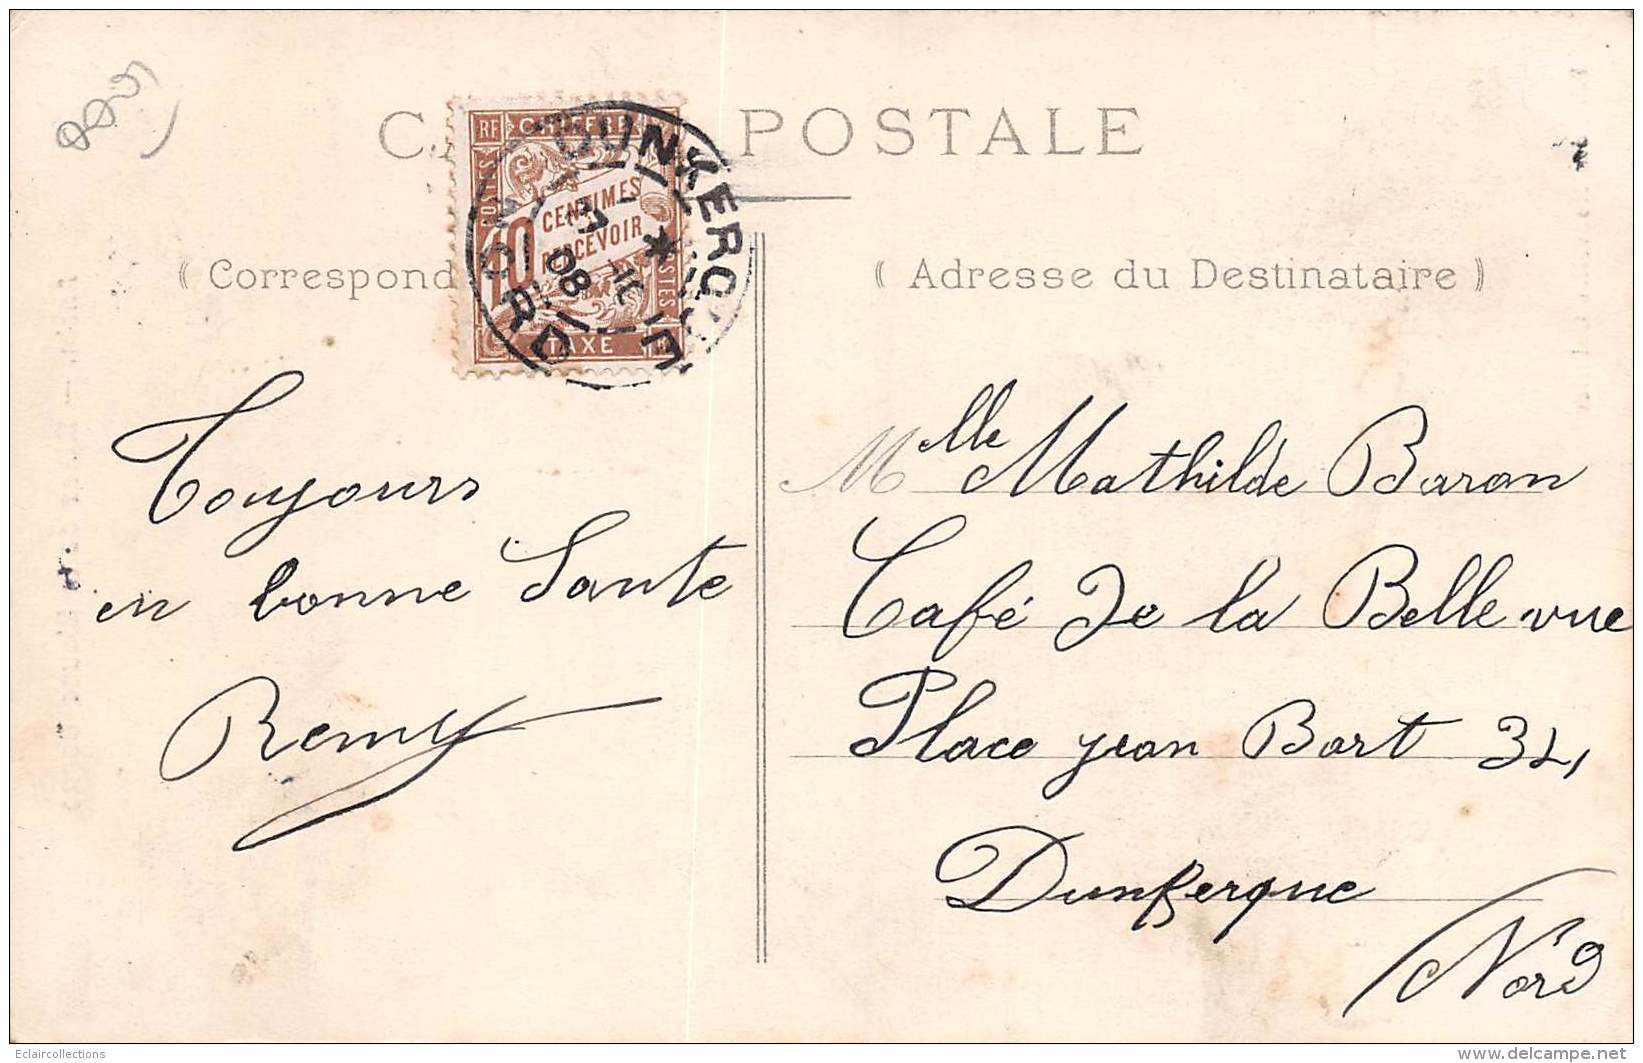 CA POSTALE
RF CHIFFRE
POSTES
10 CENTIMES
À PERCEVOIR
POSTES
TAXE
DUNKERQUE
NORD
08
( Correspond
( Adresse du Destinataire )
Toujours
en bonne Sante
Remy
Mlle Mathilde Baron
Café De la Belle vue
Place jean Bart 32,
Dunkerque
Nord
Eclaircollections
delcampe.net